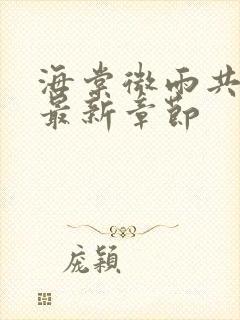 海棠微雨共
最新章節
庞穎